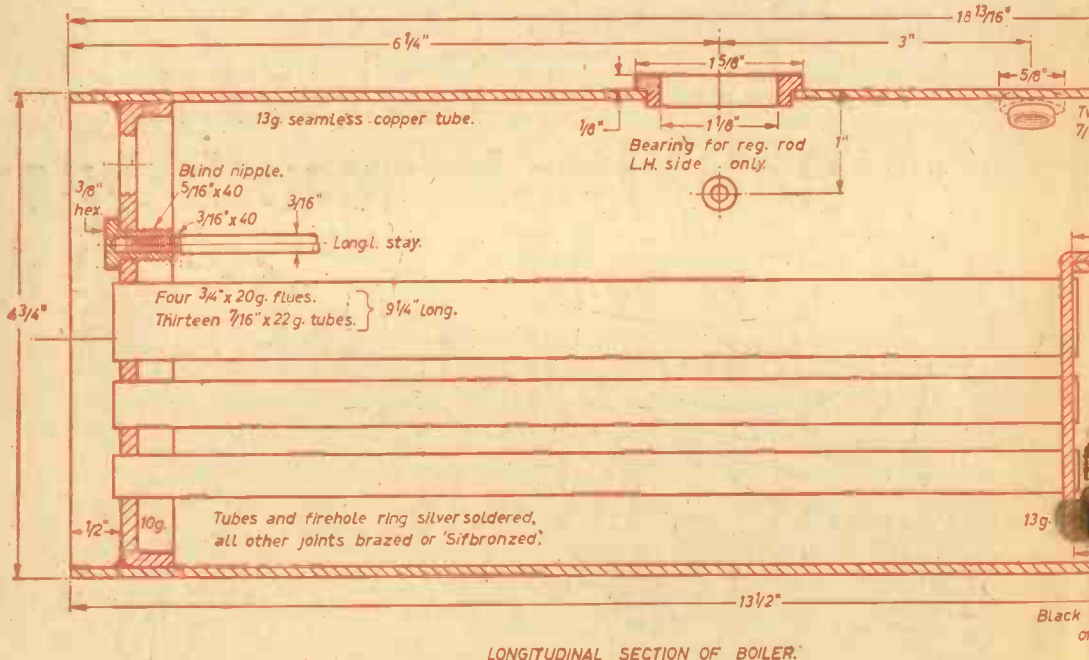 18 13/16"
6 1/4"
3"
1 5/8"
5/8"
13g. seamless copper tube.
1/8"
1 1/8"
1"
Bearing for reg. rod
L.H. side only.
Blind nipple.
5/16" x 40
3/8"
hex.
3/16" x 40
3/16"
Longl. stay.
4 3/4"
Four 3/4" x 20g. flues.
Thirteen 7/16" x 22g. tubes.
9 1/4" long.
1/2"
10g.
Tubes and firehole ring silver soldered,
all other joints brazed or 'Sifbronzed'.
13g.
13 1/2"
Black
LONGITUDINAL SECTION OF BOILER.